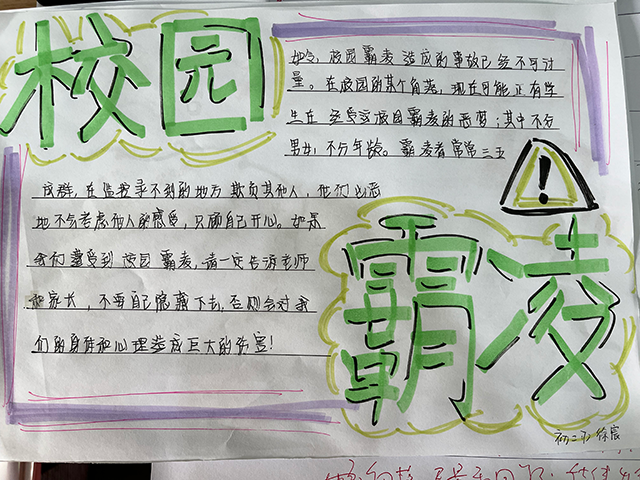 校园
如今，校园霸凌造成的事故已经不可计
量。在校园的某个角落，现在可能正有学
生在经受这校园霸凌的恶梦；其中不分
男女，不分年龄。霸凌者常常三五
成群，在监控录不到的地方欺负其他人，他们凶恶
地不会考虑他人的感受，只顾自己开心。如果
我们遭受到校园霸凌，请一定告诉老师
和家长，不要自己隐藏下去，否则会对我
们的身体和心理造成巨大的伤害！
!
霸凌
初二